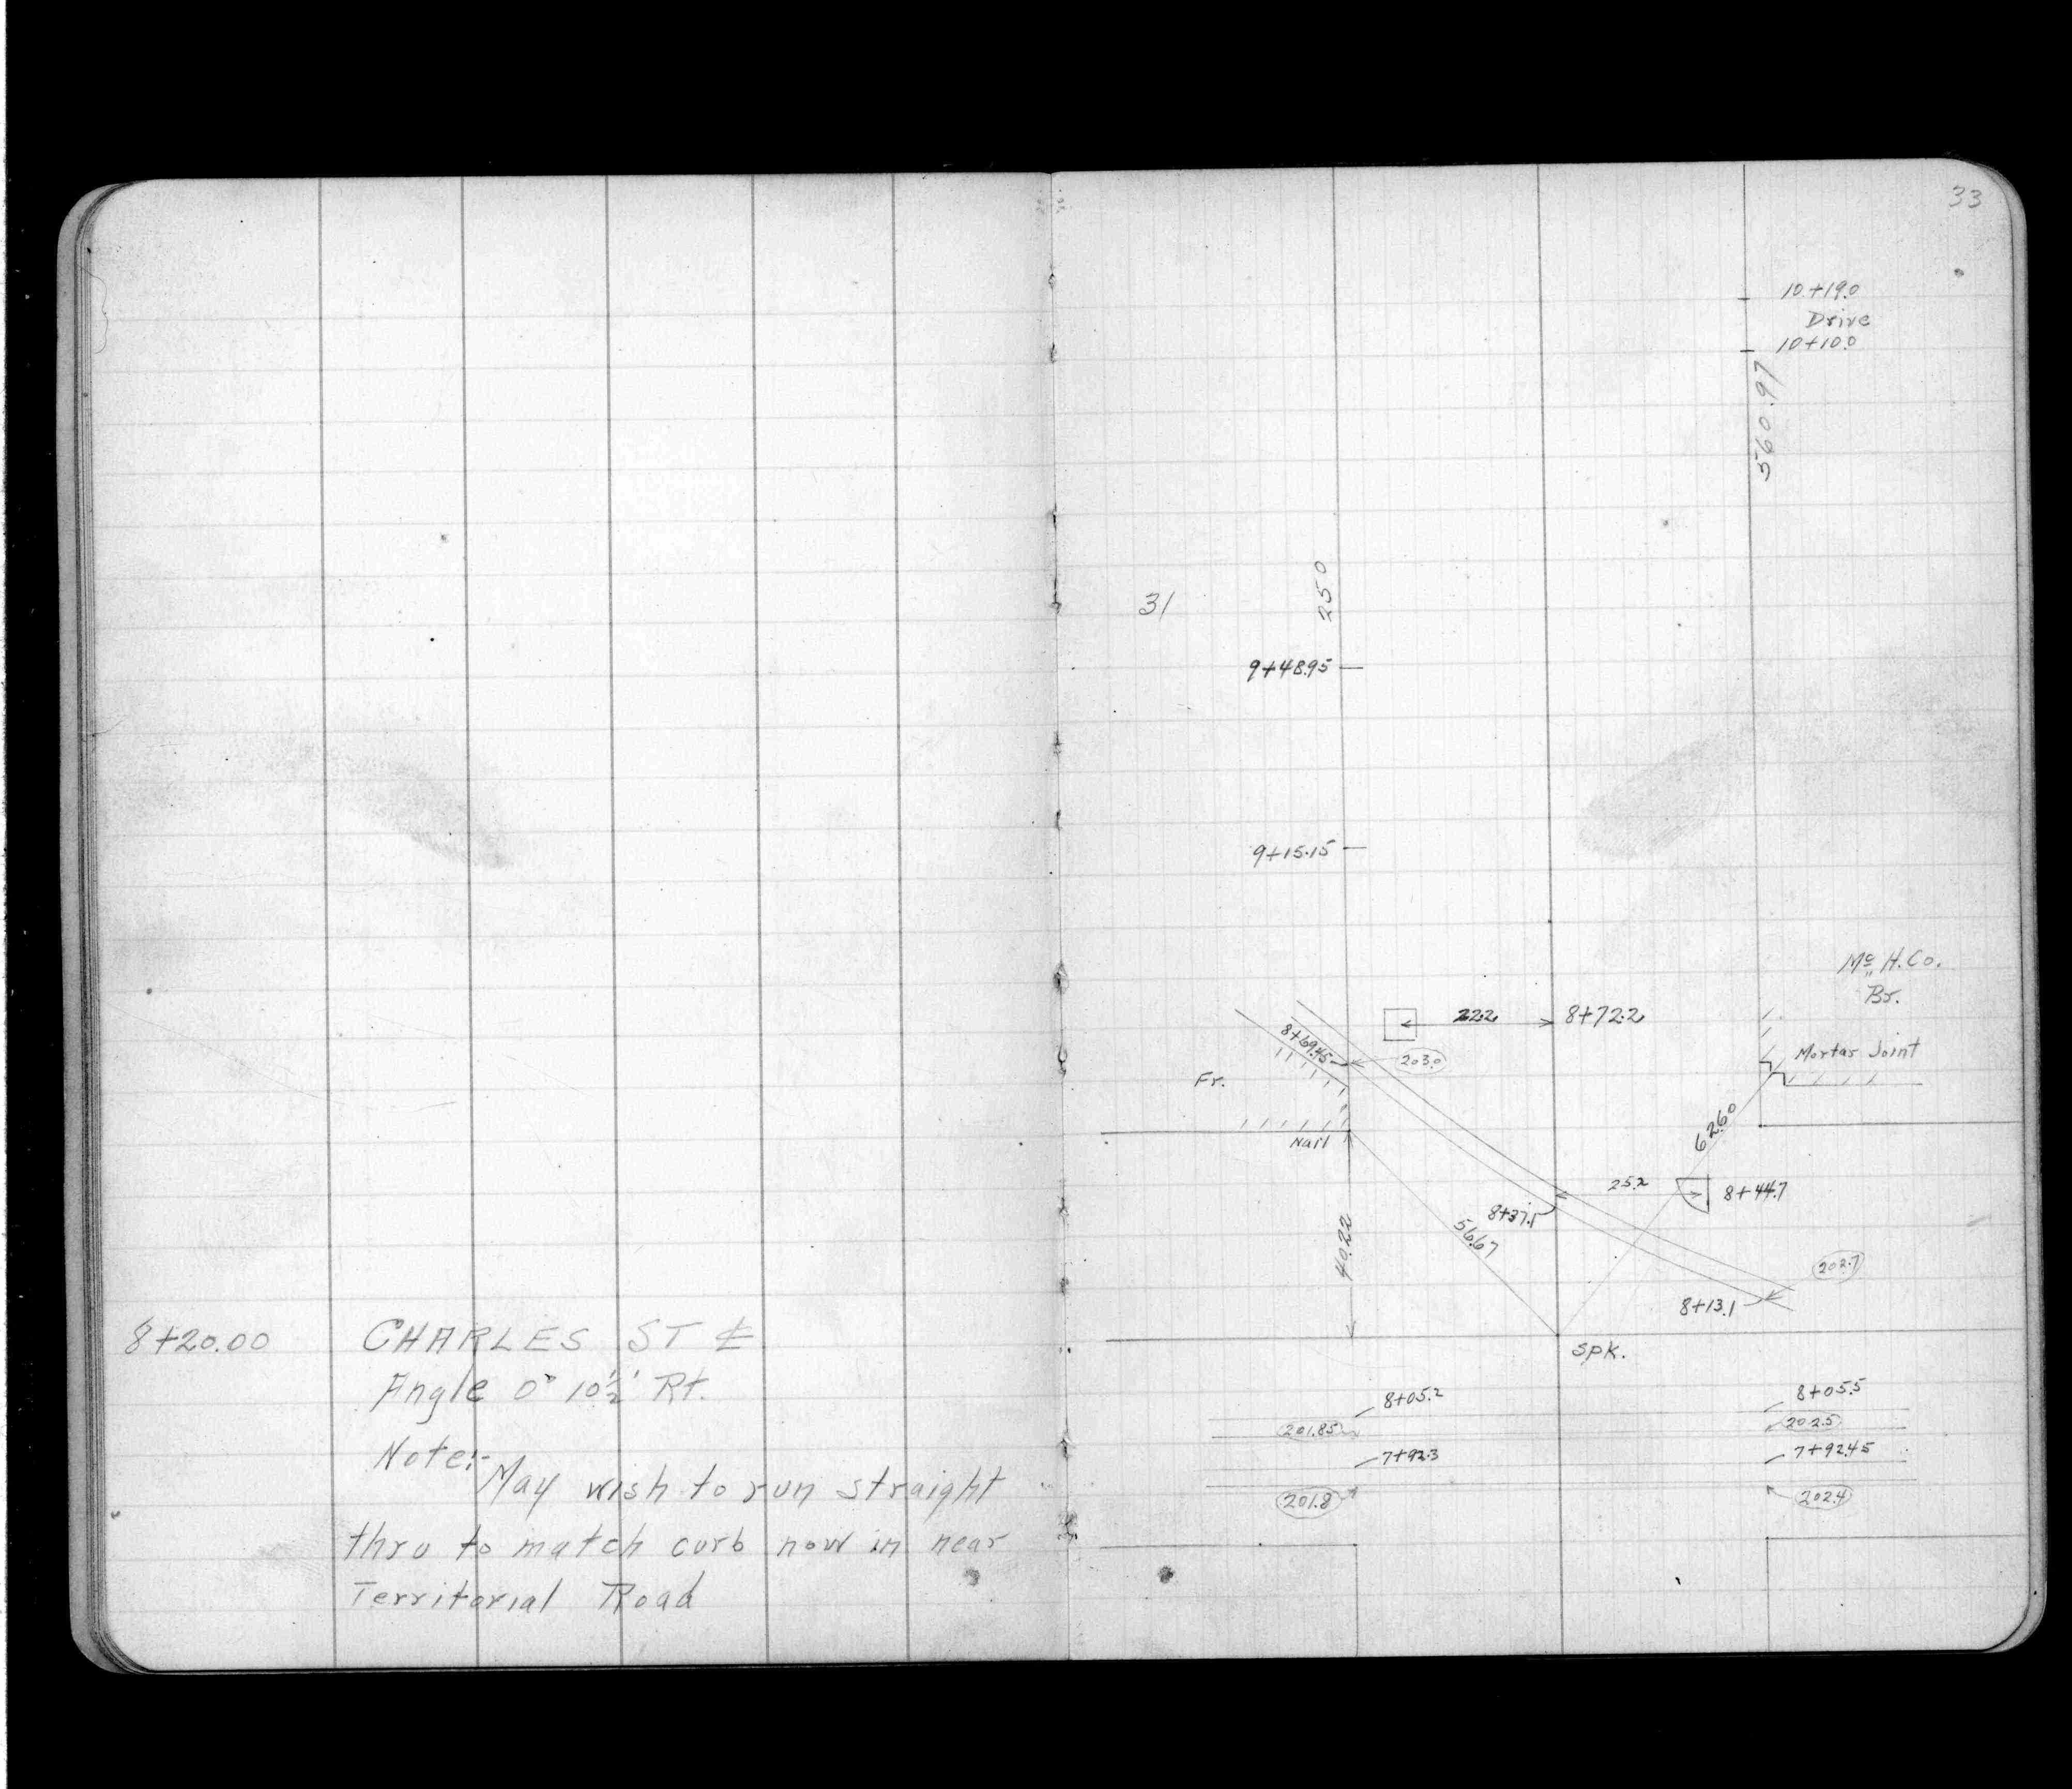 8+20.00 CHARLES ST ℄
Angle 0° 10½' Rt.
Note:-
May wish to run straight
thru to match curb now in near
Territorial Road
33
10+19.0
Drive
10+10.0
560.97
250
31
9+48.95
9+15.15
Mc H.Co.
Br.
22.2 8+72.2
8+69.45
203.0
Mortar Joint
Fr.
62.60
Nail
25.2
8+44.7
8+37.5
56.67
40.22
202.7
8+13.1
Spk.
8+05.2 8+05.5
201.85 202.5
7+92.3 7+92.45
201.8 202.4